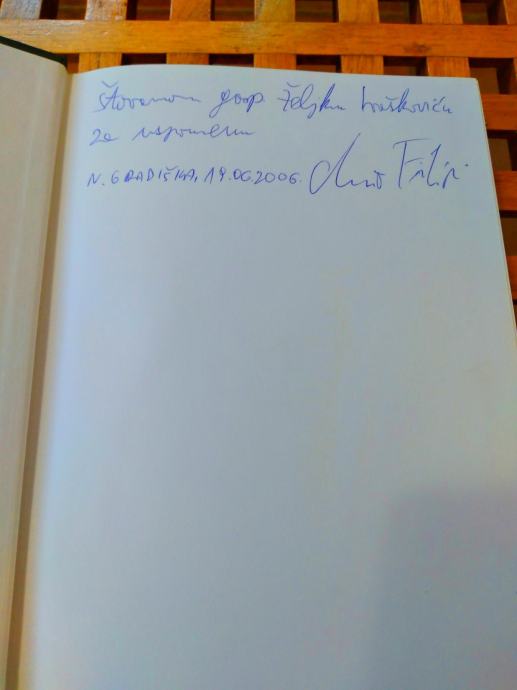 Štovanom gosp. Željku Kraškoviću
za uspomenu
N. GRADIŠKA, 19.06.2006. Filipi